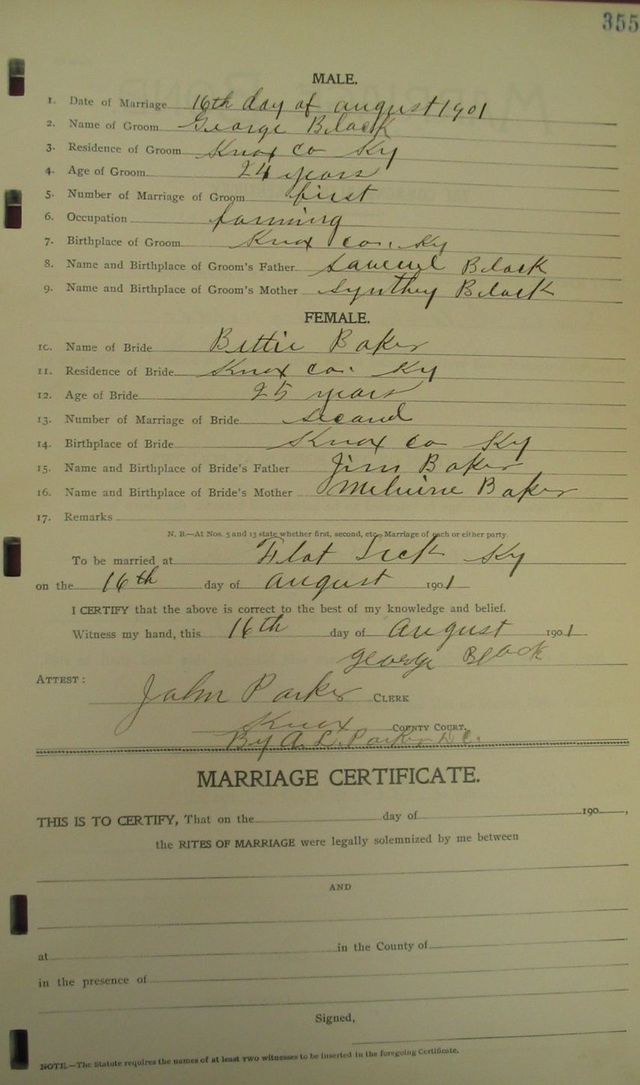 355
MALE.
1. Date of Marriage 16th day of august 1901
2. Name of Groom George Black
3. Residence of Groom Knox Co Ky
4. Age of Groom 24 years
5. Number of Marriage of Groom first
6. Occupation farming
7. Birthplace of Groom Knox co. Ky
8. Name and Birthplace of Groom's Father Black
9. Name and Birthplace of Groom's Mother Synthey Black
FEMALE.
10. Name of Bride Bettie Baker
11. Residence of Bride Knox co. Ky
12. Age of Bride 25 years
13. Number of Marriage of Bride Second
14. Birthplace of Bride Knox co Ky
15. Name and Birthplace of Bride's Father Jim Baker
16. Name and Birthplace of Bride's Mother Baker
17. Remarks
N. B.—At Nos. 5 and 13 state whether first, second, etc., Marriage of each or either party.
To be married at Flat Lick Ky
on the 16th day of august 1901
I CERTIFY that the above is correct to the best of my knowledge and belief.
Witness my hand, this 16th day of August 1901
George Black
ATTEST: John Parker CLERK
Knox COUNTY COURT.
By A. L. Parker D.C.
MARRIAGE CERTIFICATE.
THIS IS TO CERTIFY, That on the day of 190 ,
the RITES OF MARRIAGE were legally solemnized by me between
AND
at in the County of
in the presence of
Signed,
NOTE.—The Statute requires the names of at least TWO witnesses to be inserted in the foregoing Certificate.